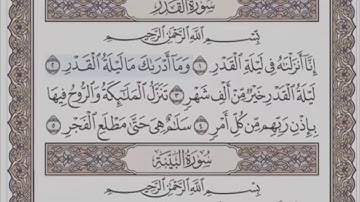 سُورَةُ الْقَدْرِ
بِسْمِ اللَّهِ الرَّحْمَٰنِ الرَّحِيمِ
إِنَّا أَنزَلْنَاهُ فِي لَيْلَةِ الْقَدْرِ ١ وَمَا أَدْرَاكَ مَا لَيْلَةُ الْقَدْرِ ٢
لَيْلَةُ الْقَدْرِ خَيْرٌ مِّنْ أَلْفِ شَهْرٍ ٣ تَنَزَّلُ الْمَلَائِكَةُ وَالرُّوحُ فِيهَا
بِإِذْنِ رَبِّهِم مِّن كُلِّ أَمْرٍ ٤ سَلَامٌ هِيَ حَتَّىٰ مَطْلَعِ الْفَجْرِ ٥
سُورَةُ الْبَيِّنَةِ
بِسْمِ اللَّهِ الرَّحْمَٰنِ الرَّحِيمِ